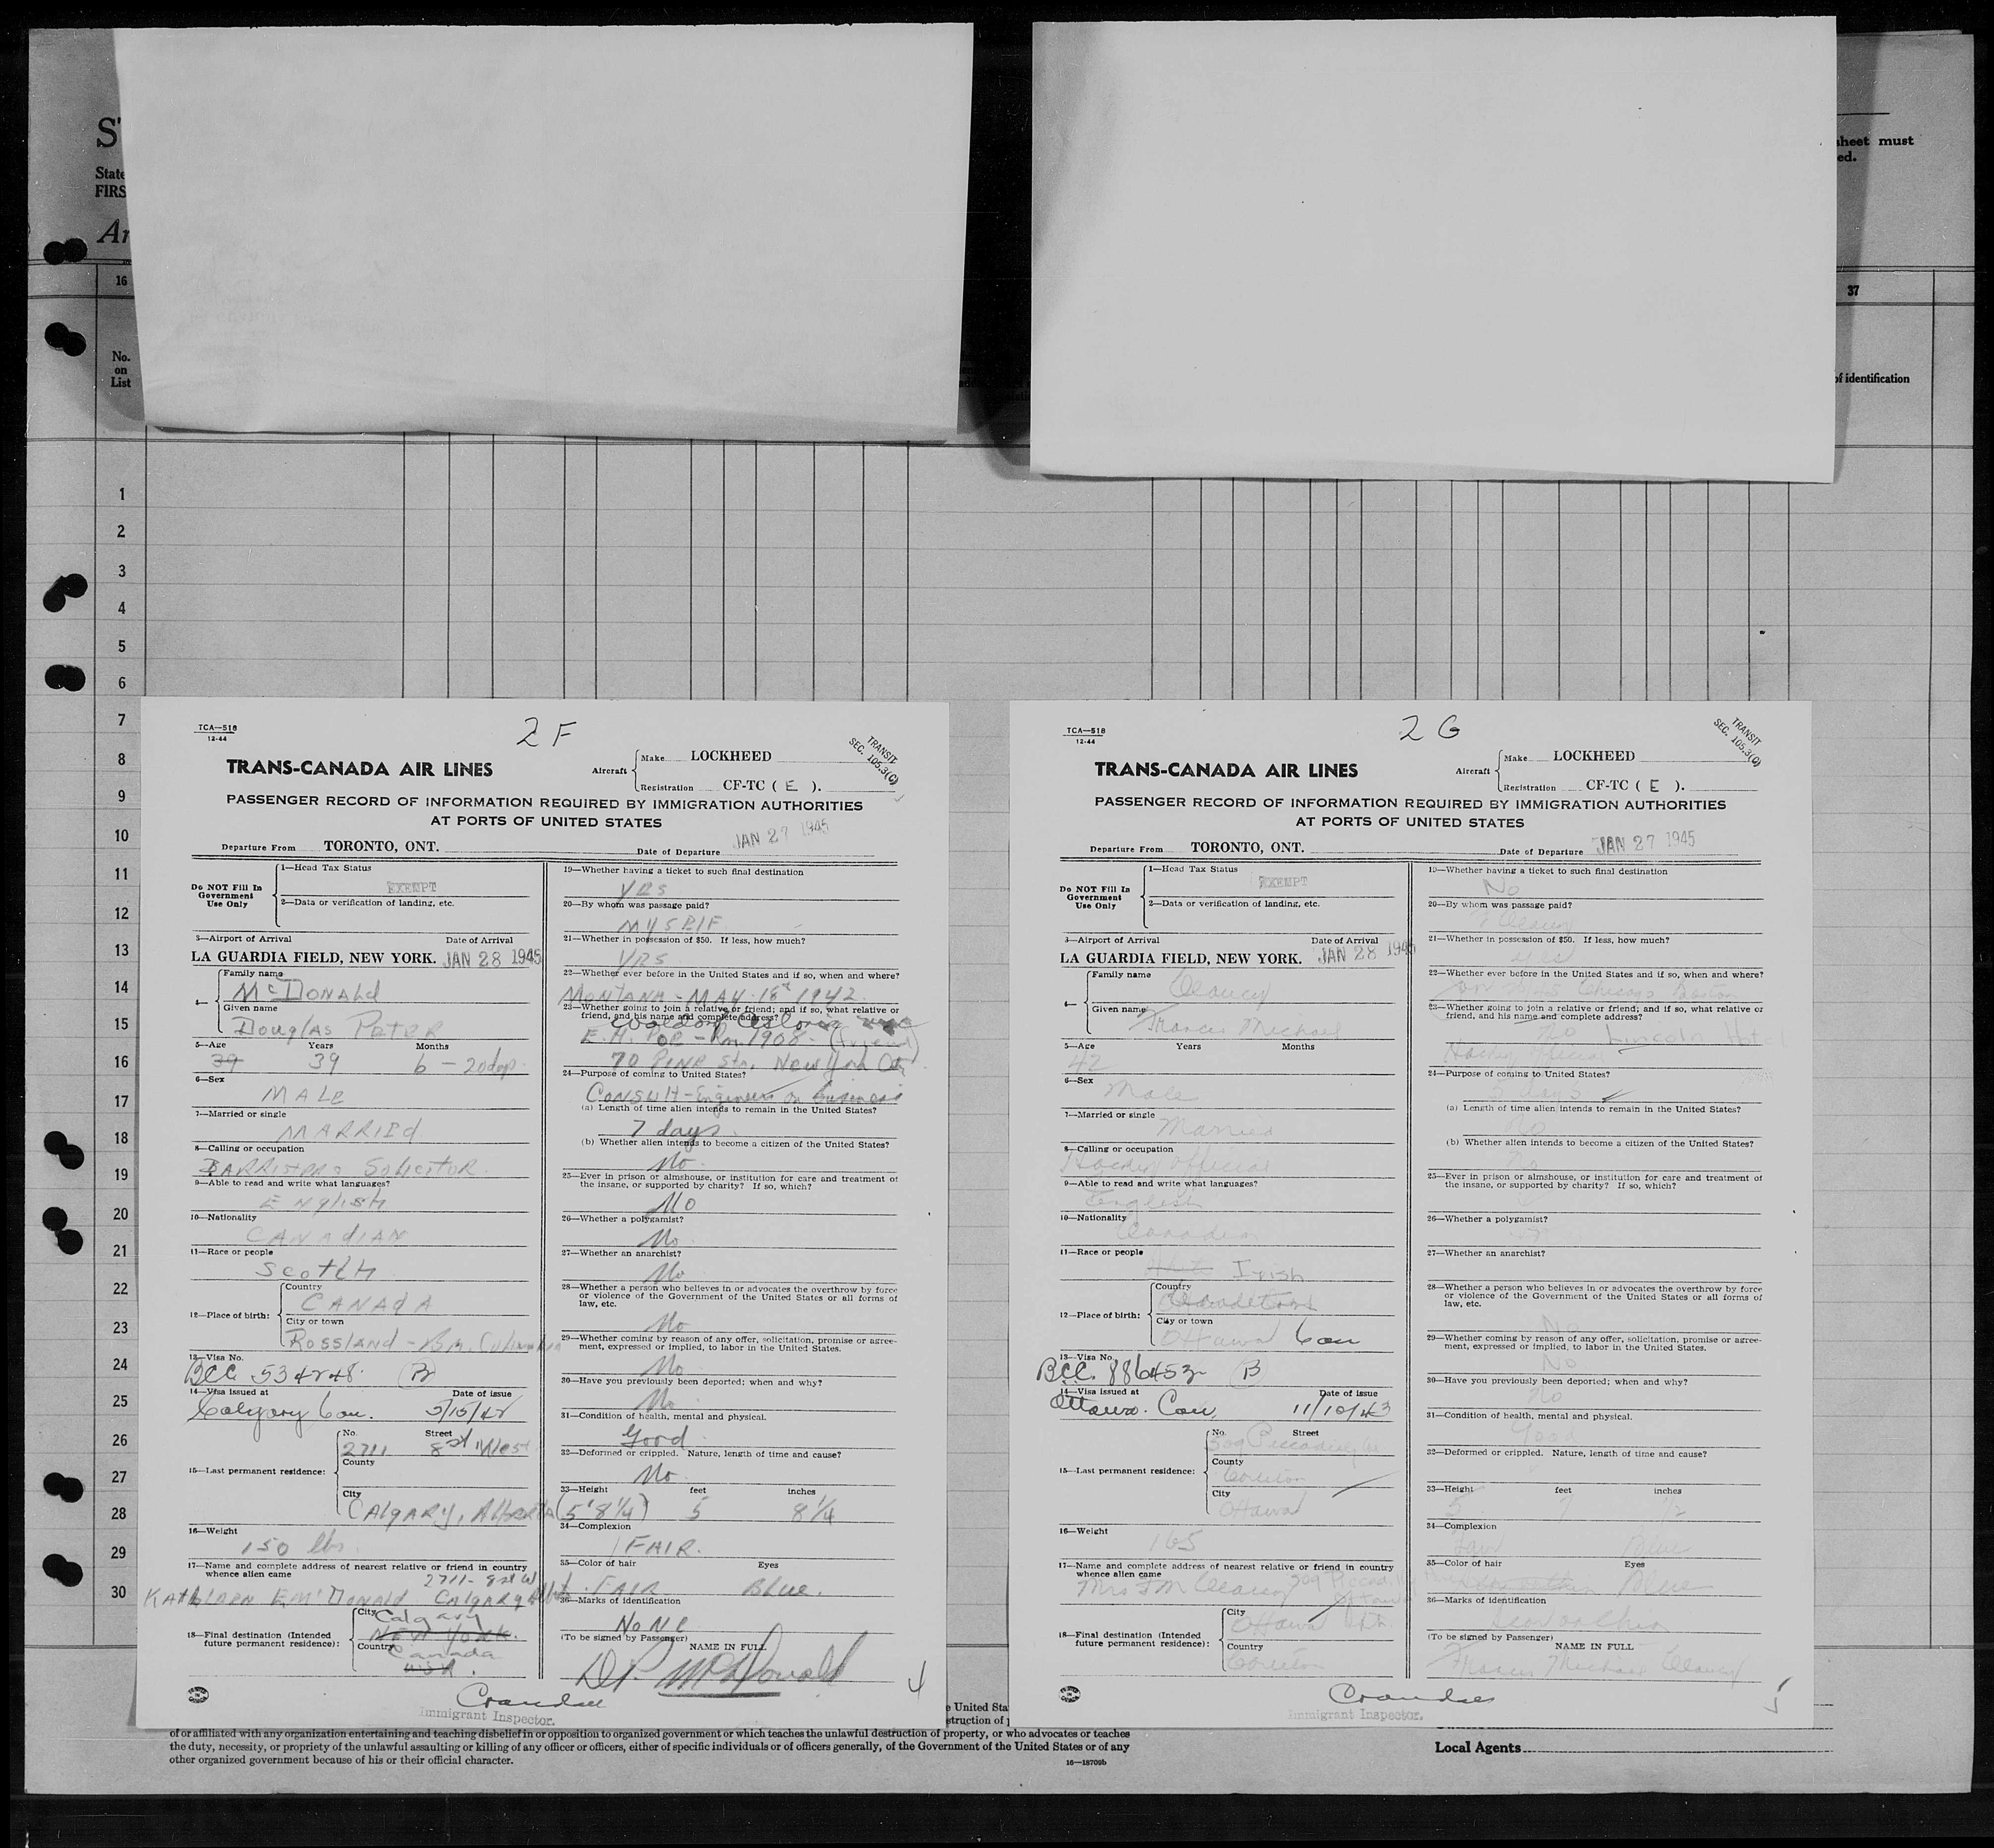 S
State
FIRS
Ar
16
No.
on
List
sheet must
ed.
37
of identification
1
2
3
4
5
6
7
8
9
10
11
12
13
14
15
16
17
18
19
20
21
22
23
24
25
26
27
28
29
30
TCA—518
12-44
2 F
TRANSIT
SEC. 105.3(C)
TRANS-CANADA AIR LINES
Aircraft
Make LOCKHEED
Registration CF-TC ( E ).
PASSENGER RECORD OF INFORMATION REQUIRED BY IMMIGRATION AUTHORITIES
AT PORTS OF UNITED STATES
Departure From TORONTO, ONT. Date of Departure JAN 27 1945
Do NOT Fill In
Government
Use Only
1—Head Tax Status
EXEMPT
2—Data or verification of landing, etc.
3—Airport of Arrival Date of Arrival
LA GUARDIA FIELD, NEW YORK. JAN 28 1945
4—
Family name
McDonald
Given name
Douglas Peter
5—Age Years Months
39 39 6 - 20 days
6—Sex
MALE
7—Married or single
MARRIEd
8—Calling or occupation
BARRISTER & SOLICITOR
9—Able to read and write what languages?
English
10—Nationality
CANADIAN
11—Race or people
Scotch
12—Place of birth:
Country
CANADA
City or town
ROSSLAND - Br. Columbia
13—Visa No.
BCC 534248 (B)
14—Visa issued at Date of issue
Calgary Can. 5/15/42
15—Last permanent residence:
No. Street
2711 8 St West
County
City
CALGARY, Alberta
16—Weight
150 lbs.
17—Name and complete address of nearest relative or friend in country
whence alien came
2711 - 8 St W
KATHLEEN E. McDONALD CALGARY Alta
18—Final destination (Intended
future permanent residence):
City
Calgary
NEW YORK.
Country
Canada
USA.
19—Whether having a ticket to such final destination
YES
20—By whom was passage paid?
MYSELF
21—Whether in possession of $50. If less, how much?
YES
22—Whether ever before in the United States and if so, when and where?
MONTANA - MAY 18th 1942
23—Whether going to join a relative or friend; and if so, what relative or
friend, and his name and complete address?
Waldorf Astoria NYC
E. H. - Rm 1908 - (Friend)
70 PINE St., New York
24—Purpose of coming to United States?
Consult - Engineers on business
(a) Length of time alien intends to remain in the United States?
7 days
(b) Whether alien intends to become a citizen of the United States?
No
25—Ever in prison or almshouse, or institution for care and treatment of
the insane, or supported by charity? If so, which?
No
26—Whether a polygamist?
No
27—Whether an anarchist?
No
28—Whether a person who believes in or advocates the overthrow by force
or violence of the Government of the United States or all forms of
law, etc.
No
29—Whether coming by reason of any offer, solicitation, promise or agree-
ment, expressed or implied, to labor in the United States.
No
30—Have you previously been deported; when and why?
No
31—Condition of health, mental and physical.
Good
32—Deformed or crippled. Nature, length of time and cause?
No
33—Height feet inches
(5' 8 1/4) 5 8 1/4
34—Complexion
FAIR.
35—Color of hair Eyes
FAIR Blue.
36—Marks of identification
NONE
(To be signed by Passenger)
NAME IN FULL
D.P. McDonald
4
Crandall
Immigrant Inspector.
TCA—518
12-44
2 G
TRANSIT
SEC. 105.3(C)
TRANS-CANADA AIR LINES
Aircraft
Make LOCKHEED
Registration CF-TC ( E ).
PASSENGER RECORD OF INFORMATION REQUIRED BY IMMIGRATION AUTHORITIES
AT PORTS OF UNITED STATES
Departure From TORONTO, ONT. Date of Departure JAN 27 1945
Do NOT Fill In
Government
Use Only
1—Head Tax Status
EXEMPT
2—Data or verification of landing, etc.
3—Airport of Arrival Date of Arrival
LA GUARDIA FIELD, NEW YORK. JAN 28 1945
4—
Family name
Clancy
Given name
Francis Michael
5—Age Years Months
42
6—Sex
Male
7—Married or single
Married
8—Calling or occupation
Hockey Official
9—Able to read and write what languages?
English
10—Nationality
Canadian
11—Race or people
Irish
12—Place of birth:
Country
City or town
Ottawa Can
13—Visa No.
BCC. 886453 (B
14—Visa issued at Date of issue
Ottawa. Can, 11/10/43
15—Last permanent residence:
No. Street
509 Piccadilly
County
Carleton
City
Ottawa
16—Weight
165
17—Name and complete address of nearest relative or friend in country
whence alien came
Mrs F M Clancy 509 Piccadilly
Ottawa
18—Final destination (Intended
future permanent residence):
City
Ottawa Ont.
Country
Carleton
19—Whether having a ticket to such final destination
No
20—By whom was passage paid?
F Clancy
21—Whether in possession of $50. If less, how much?
Yes
22—Whether ever before in the United States and if so, when and where?
Chicago Boston
23—Whether going to join a relative or friend; and if so, what relative or
friend, and his name and complete address?
No Lincoln Hot
Hockey Official
24—Purpose of coming to United States?
3 days
(a) Length of time alien intends to remain in the United States?
No
(b) Whether alien intends to become a citizen of the United States?
No
25—Ever in prison or almshouse, or institution for care and treatment of
the insane, or supported by charity? If so, which?
26—Whether a polygamist?
27—Whether an anarchist?
28—Whether a person who believes in or advocates the overthrow by force
or violence of the Government of the United States or all forms of
law, etc.
No
29—Whether coming by reason of any offer, solicitation, promise or agree-
ment, expressed or implied, to labor in the United States.
No
30—Have you previously been deported; when and why?
No
31—Condition of health, mental and physical.
Good
32—Deformed or crippled. Nature, length of time and cause?
33—Height feet inches
5 7 1/2
34—Complexion
Fair Blue
35—Color of hair Eyes
Blue
36—Marks of identification
Scar on chin
(To be signed by Passenger)
NAME IN FULL
Francis Michael Clancy
5
Crandall
Immigrant Inspector.
e United Sta
struction of
of or affiliated with any organization entertaining and teaching disbelief in or opposition to organized government or which teaches the unlawful destruction of property, or who advocates or teaches
the duty, necessity, or propriety of the unlawful assaulting or killing of any officer or officers, either of specific individuals or of officers generally, of the Government of the United States or of any
other organized government because of his or their official character.
16—18709b
Local Agents